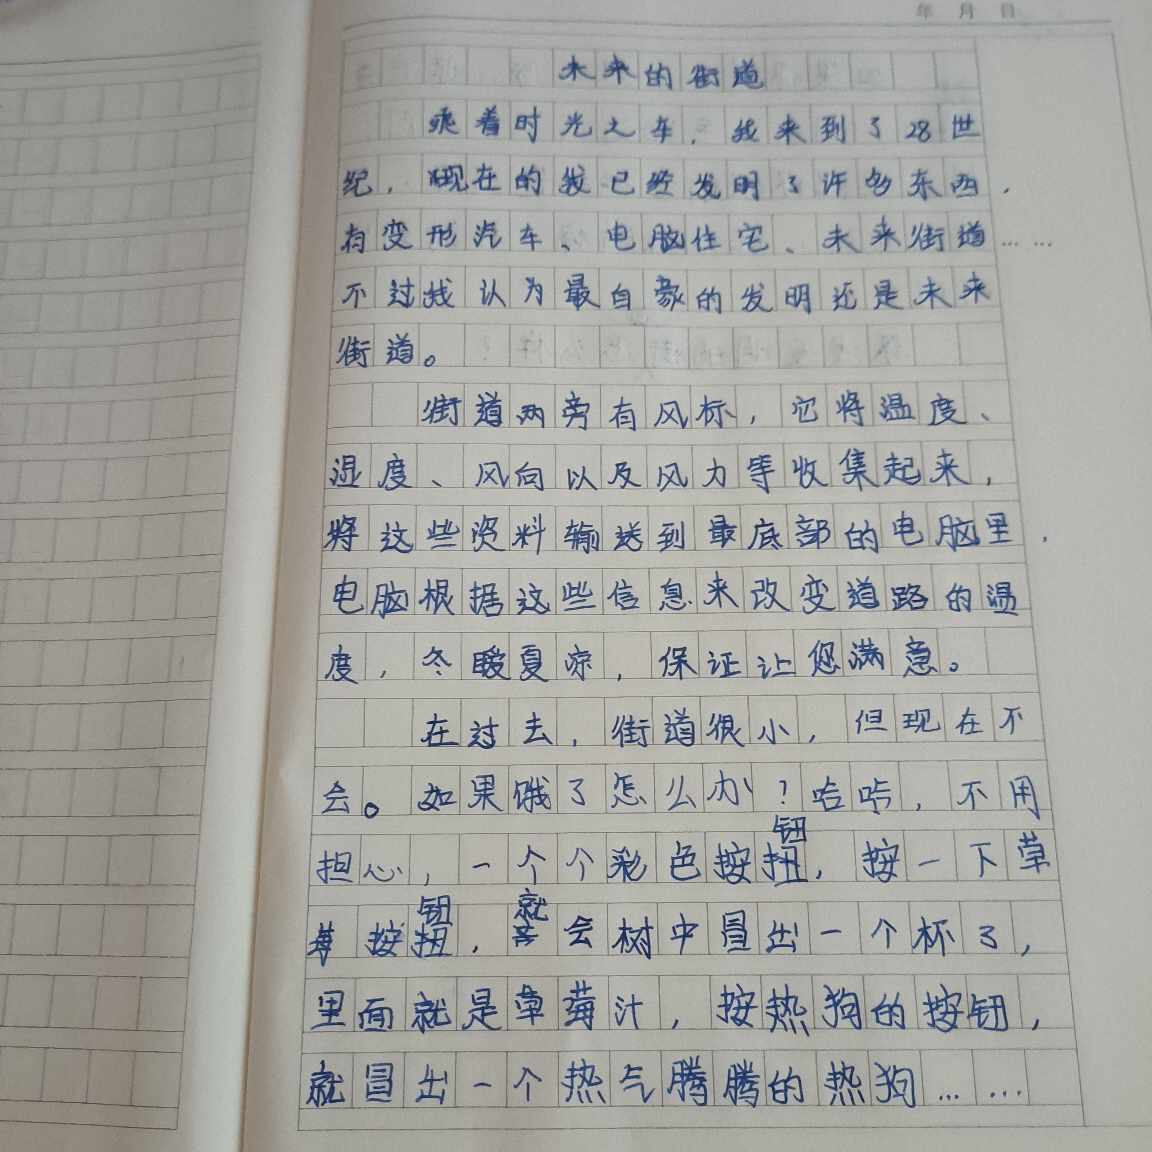 年 月 日
未来的街道
乘着时光之车，我来到了28世
纪，现在的我已经发明了许多东西，
有变形汽车、电脑住宅、未来街道……
不过我认为最自豪的发明还是未来
街道。
街道两旁有风标，它将温度、
湿度、风向以及风力等收集起来，
将这些资料输送到最底部的电脑里，
电脑根据这些信息来改变道路的温
度，冬暖夏凉，保证让您满意。
在过去，街道很小，但现在不
会。如果饿了怎么办？哈哈，不用
钮
担心，一个个彩色按扭，按一下草
钮 就
莓按扭，会树中冒出一个杯了，
里面就是草莓汁，按热狗的按钮，
就冒出一个热气腾腾的热狗……